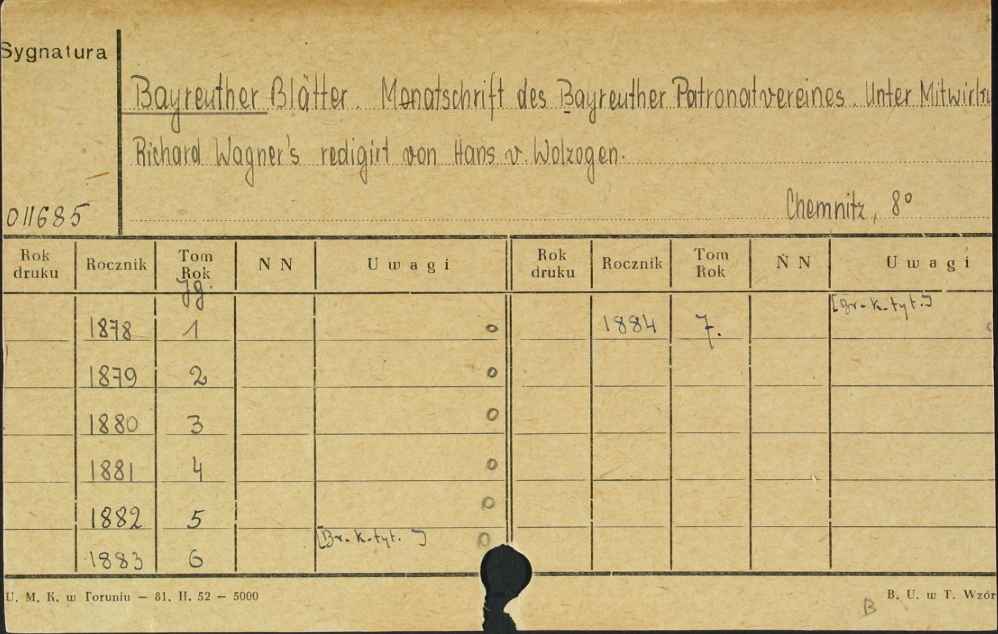 Sygnatura
Bayreuther Blätter. Monatschrift des Bayreuther Patronatvereines. Unter Mitwirku
Richard Wagner's redigirt von Hans v. Wolzogen.
011685 Chemnitz, 8°
Rok druku Rocznik Tom Rok N N Uwagi Rok druku Rocznik Tom Rok N N Uwagi
Jg. [Br. k. tyt.]
1878 1 o 1884 7.
1879 2 o
1880 3 o
1881 4 o
1882 5 o
[Br. k. tyt. ]
1883 6 o
U. M. K. w Toruniu — 81. II. 52 — 5000 B. U. w T. Wzór
B